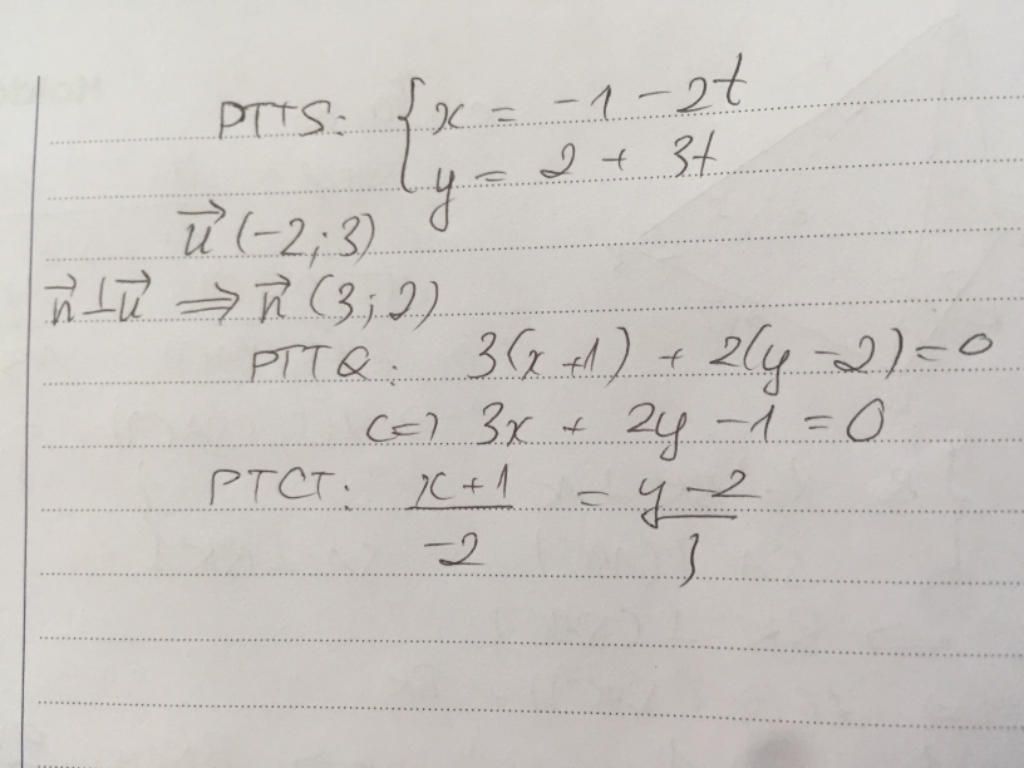 PTTS: { x = -1 - 2t
y = 2 + 3t
u⃗ (-2; 3)
n⃗ ⊥ u⃗ ⇒ n⃗ (3; 2)
PTTQ: 3(x + 1) + 2(y - 2) = 0
<=> 3x + 2y - 1 = 0
PTCT: x + 1 / -2 = y - 2 / 3